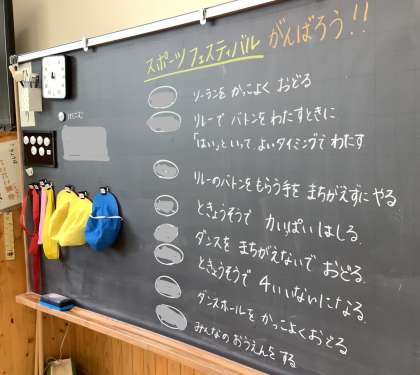 スポーツフェスティバル がんばろう!!
ソーランを かっこよく おどる
リレーで バトンを わたすときに
「はい」といって、よいタイミングで わたす
リレーのバトンを もらう手を まちがえずに やる
ときょうそうで 力いっぱい はしる。
ダンスを まちがえないで おどる。
ときょうそうで 4いいないになる。
ダンスホールを かっこよくおどる
みんなの おうえんを する